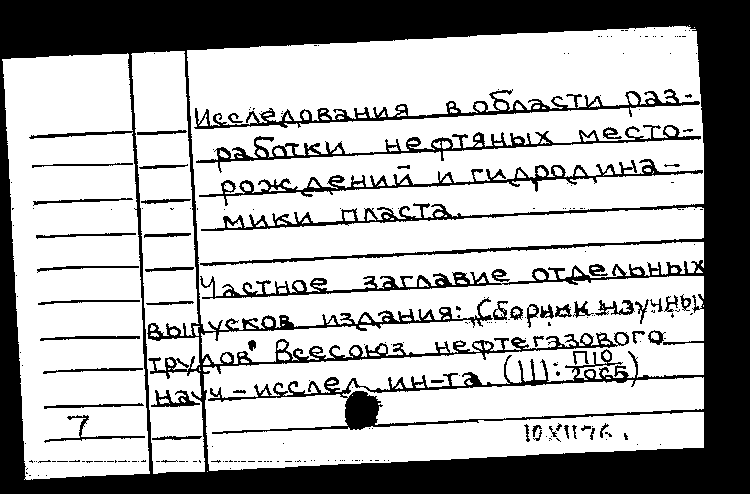 Исследования в области раз-
работки нефтяных место-
рождений и гидродина-
мики пласта.
Частное заглавие отдельных
выпусков издания: "Сборник научных
трудов" Всесоюз. нефтегазового
науч-исслед. ин-та. (Ш: П10/2065).
7
10 XII 76.